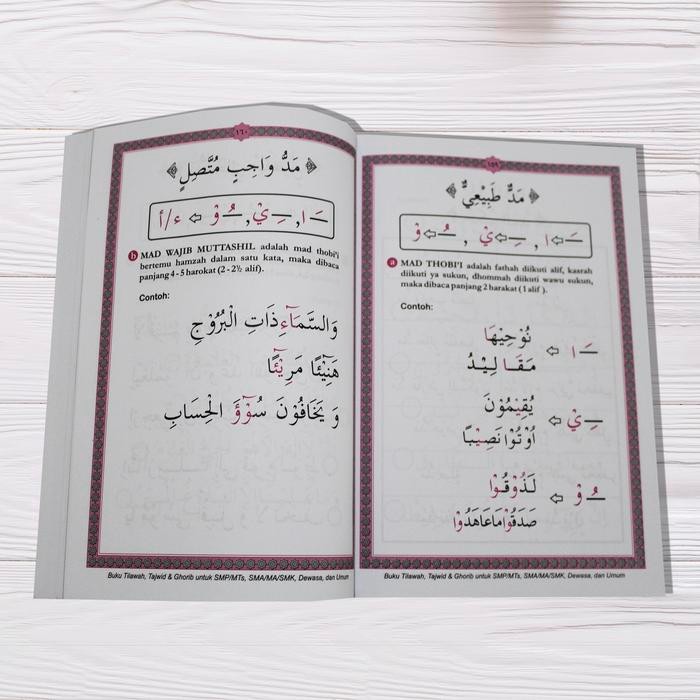 ١٥٩
مَدٌّ طَبِيْعِيٌّ
ـَـ⇦ا , ـِـ⇦يْ , ـُـ⇦وْ
a MAD THOBI'I adalah fathah diikuti alif, kasrah
diikuti ya sukun, dhommah diikuti wawu sukun,
maka dibaca panjang 2 harakat (1 alif ).
Contoh:
ـَـ ا ⇦ نُوْحِيْهَا
مَقَالِيْدُ
ـِـ يْ ⇦ يُقِيْمُوْنَ
اُوْتُوْا نَصِيْبًا
ـُـ وْ ⇦ لَذُوْقُوْا
صَدَقُوْا مَا عَاهَدُوْا
Buku Tilawah, Tajwid & Ghorib untuk SMP/MTs, SMA/MA/SMK, Dewasa, dan Umum
١٦٠
مَدُّ وَاجِبٍ مُتَّصِلٍ
ـَـ ا, ـِـ يْ, ـُـ وْ ⇦ ء/أ
b MAD WAJIB MUTTASHIL adalah mad thobi'i
bertemu hamzah dalam satu kata, maka dibaca
panjang 4 - 5 harokat (2 - 2½ alif).
Contoh:
وَالسَّمَآءِ ذَاتِ الْبُرُوْجِ
هَنِيْٓئًا مَرِيْٓئًا
وَ يَخَافُوْنَ سُوْٓؤَ الْحِسَابِ
Buku Tilawah, Tajwid & Ghorib untuk SMP/MTs, SMA/MA/SMK, Dewasa, dan Umum